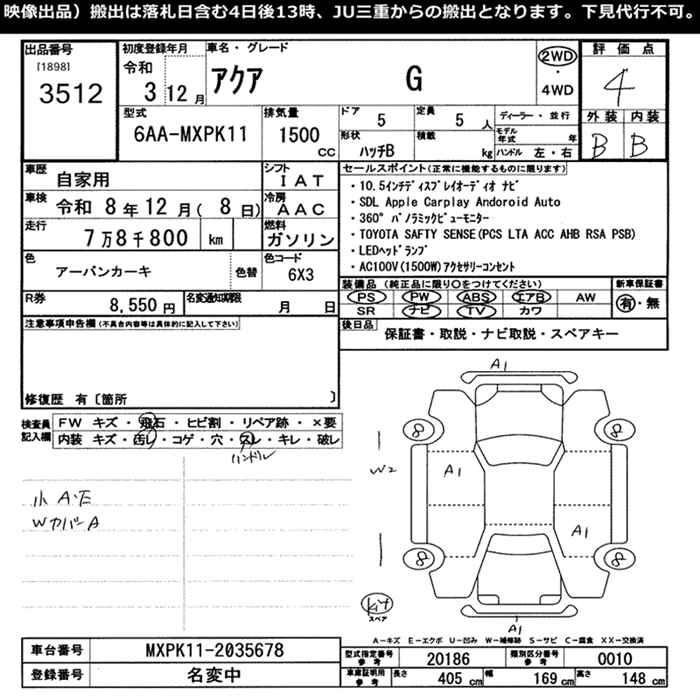 映像出品）搬出は落札日含む4日後13時、JU三重からの搬出となります。下見代行不可。
出品番号
[1898]
3512
初度登録年月
令和
3 12 月
車名・グレード
アクア G
2WD
・
4WD
評価点
4
外装 内装
B B
型式
6AA-MXPK11
排気量
1500
cc
ドア
5
定員
5 人
ディーラー・並行
形状
ハッチB
積載
kg
モデル年式 年
ハンドル 左・右
車歴
自家用
シフト
IAT
車検
令和 8年 12月( 8日)
冷房
AAC
走行
7万8千800 km
燃料
ガソリン
色
アーバンカーキ
色替
色コード
6X3
R券
8,550円
名変通知期限
月 日
セールスポイント(正常に機能するものに限ります)
・10.5インチディスプレイオーディオ ナビ
・SDL Apple Carplay Andoroid Auto
・360° パノラミックビューモニター
・TOYOTA SAFTY SENSE(PCS LTA ACC AHB RSA PSB)
・LEDヘッドランプ
・AC100V(1500W)アクセサリーコンセント
装備品(純正品に限り○をつけてください)
PS PW ABS エアB AW
SR ナビ TV カワ
新車保証書
有・無
後日品
保証書・取説・ナビ取説・スペアキー
注意事項申告欄(不具合内容等は具体的に記入して下さい)
修復歴 有〔箇所 〕
検査員記入欄
FW キズ・飛石・ヒビ割・リペア跡・×要
内装 キズ・汚レ・コゲ・穴・スレ・キレ・破レ
ハンドル
小A・E
WカバーA
A1
8
8
W2
A1
A1
8
8
キット
スペア
A1
A-キズ E-エクボ U-凹み W-補修跡 S-サビ C-腐食 XX-交換済
車台番号
MXPK11-2035678
登録番号
名変中
型式指定番号
参考
20186
類別区分番号
参考
0010
車庫証明用
参考
長さ
405 cm
幅
169 cm
高さ
148 cm